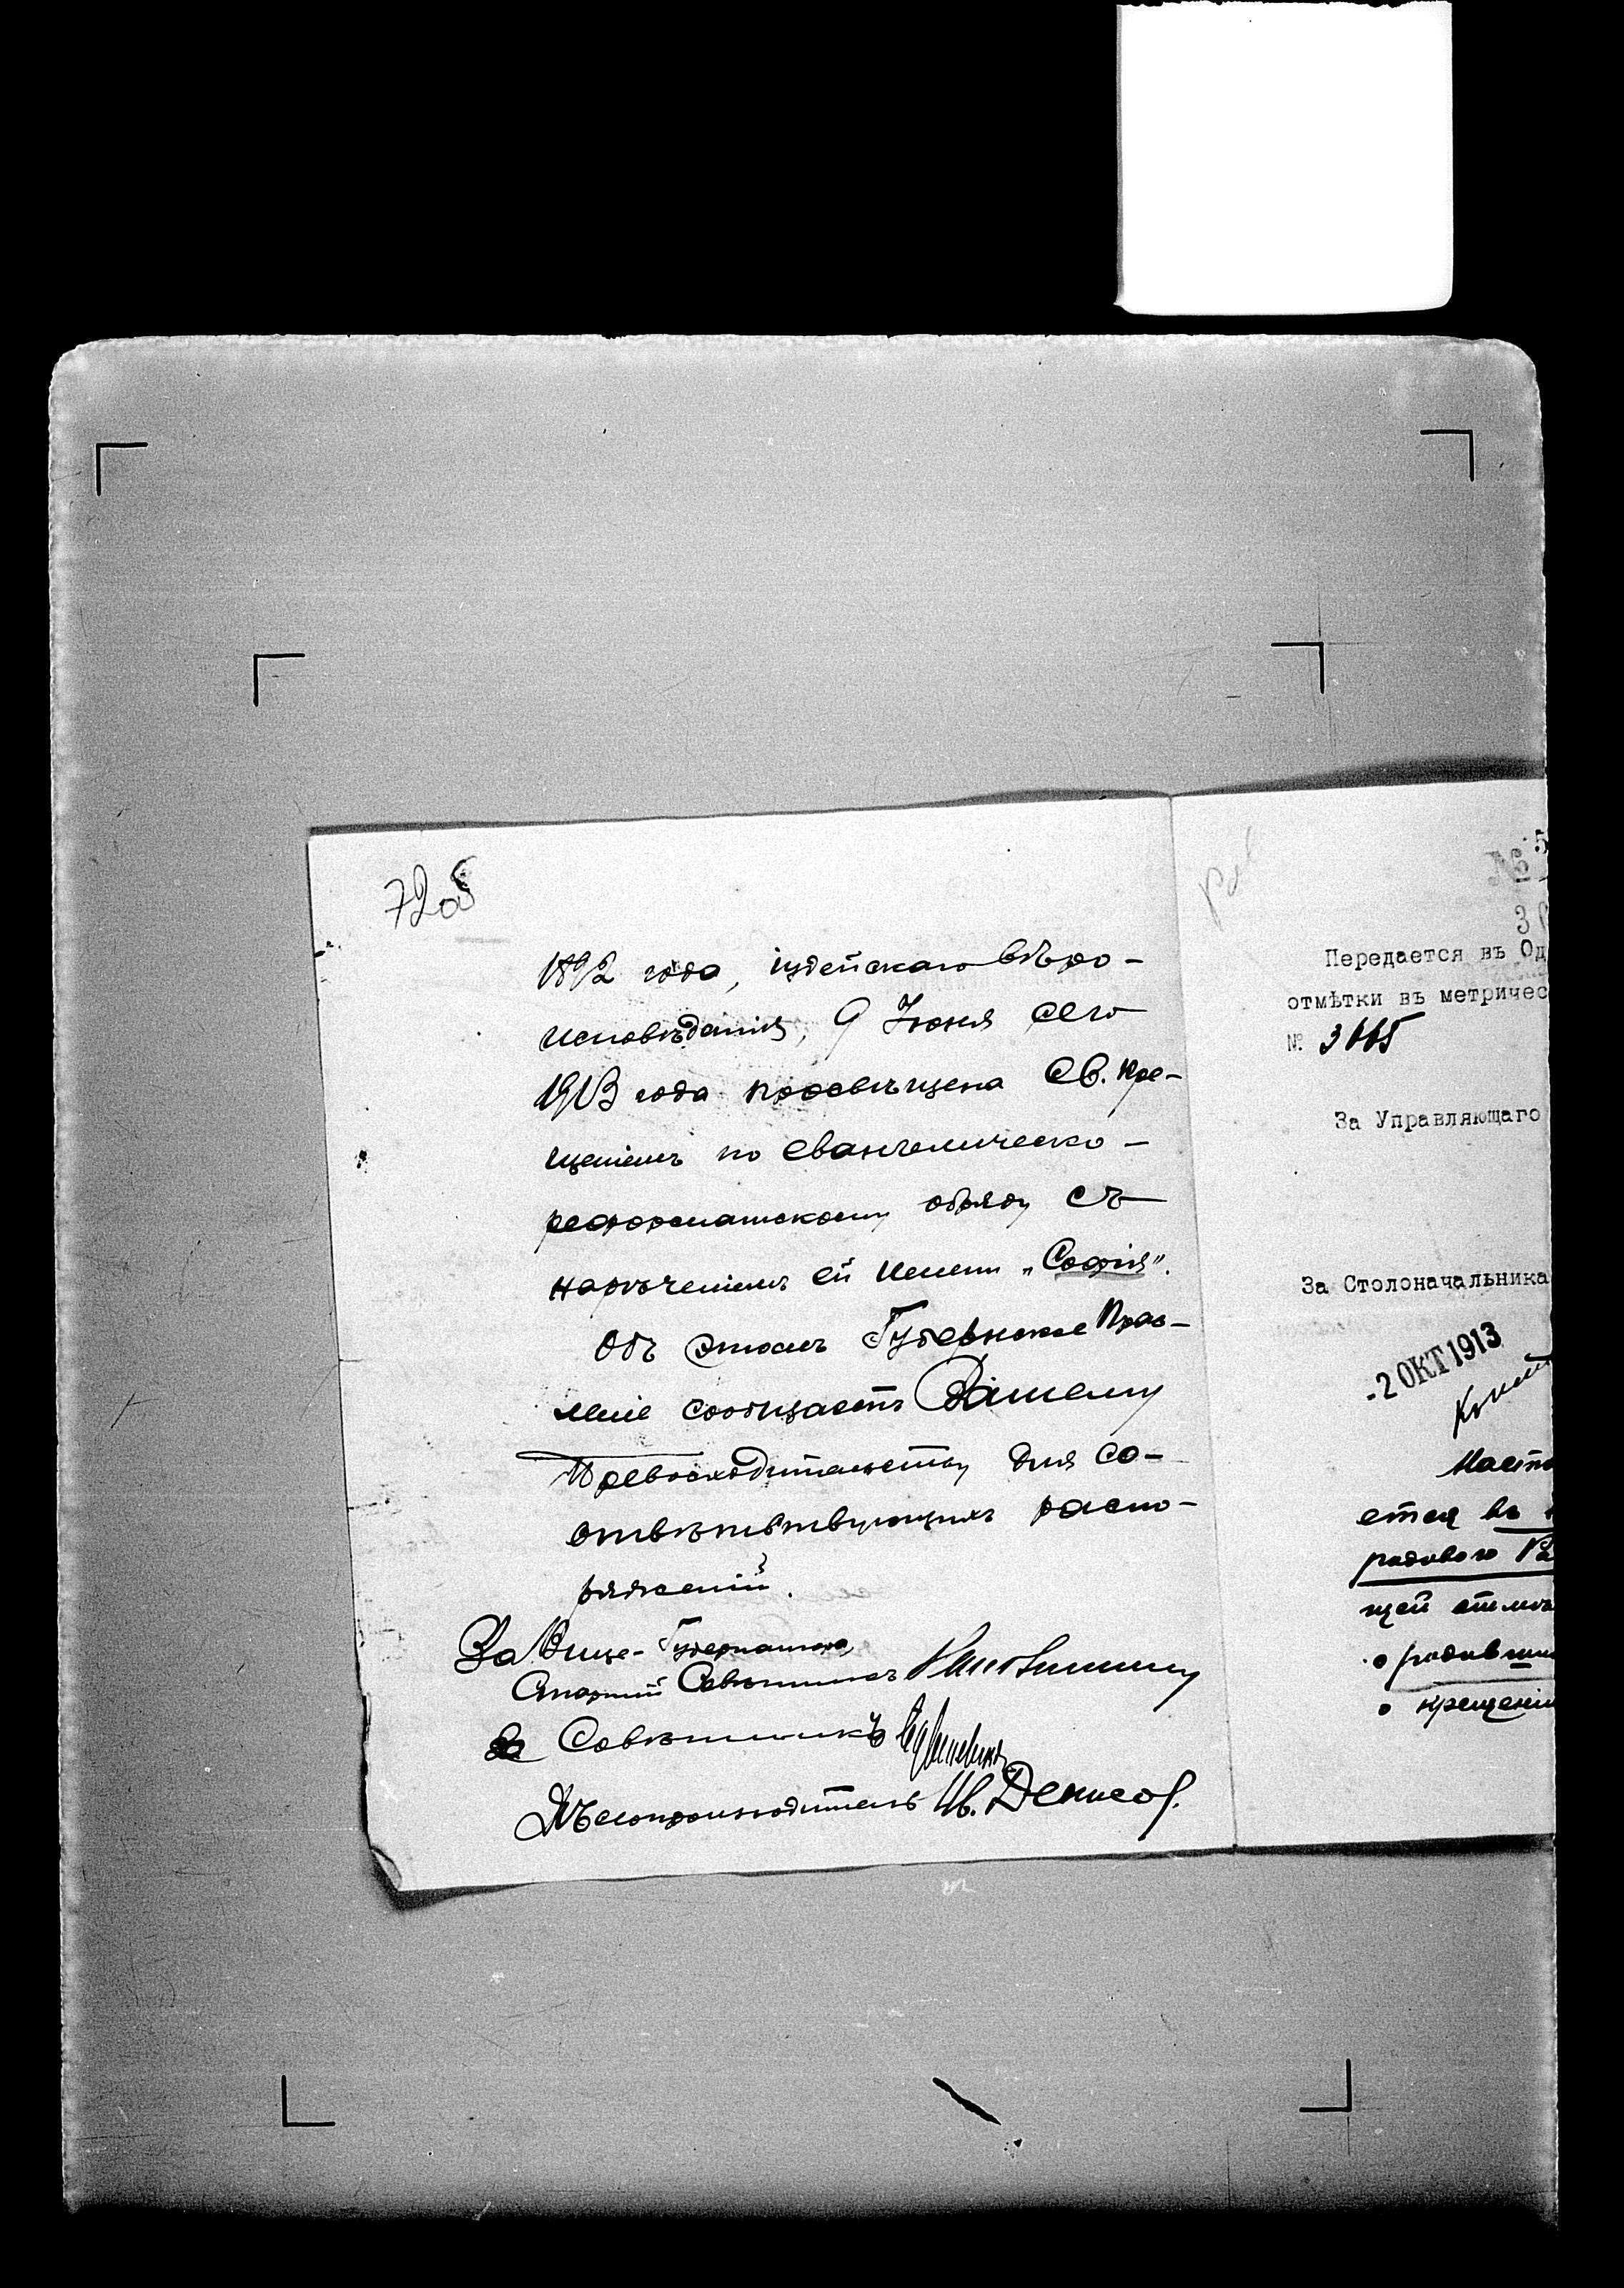 7208
1892 года, іудейскаго вѣро-
исповѣданія, 9 Іюня сего
1913 года просвѣщена Св. Кре-
щеніемъ по евангелическо-
реформатскому обряду съ
нарѣченіемъ ей имени „Софія".
Объ этомъ Губернское Прав-
леніе сообщаетъ Вашему
Превосходительству для со-
отвѣтствующихъ распо-
ряженій.
За Вице-Губернатора,
Старшій Совѣтникъ
За Совѣтникъ
Дѣлопроизводитель Ив. Денисов.
№ 5
30
Передается въ Од
отмѣтки въ метричес
№ 3665
За Управляющаго
За Столоначальника
-2 ОКТ 1913
Насто
ется въ
радового Ра
щей отмѣ
о родивши
о крещеніи